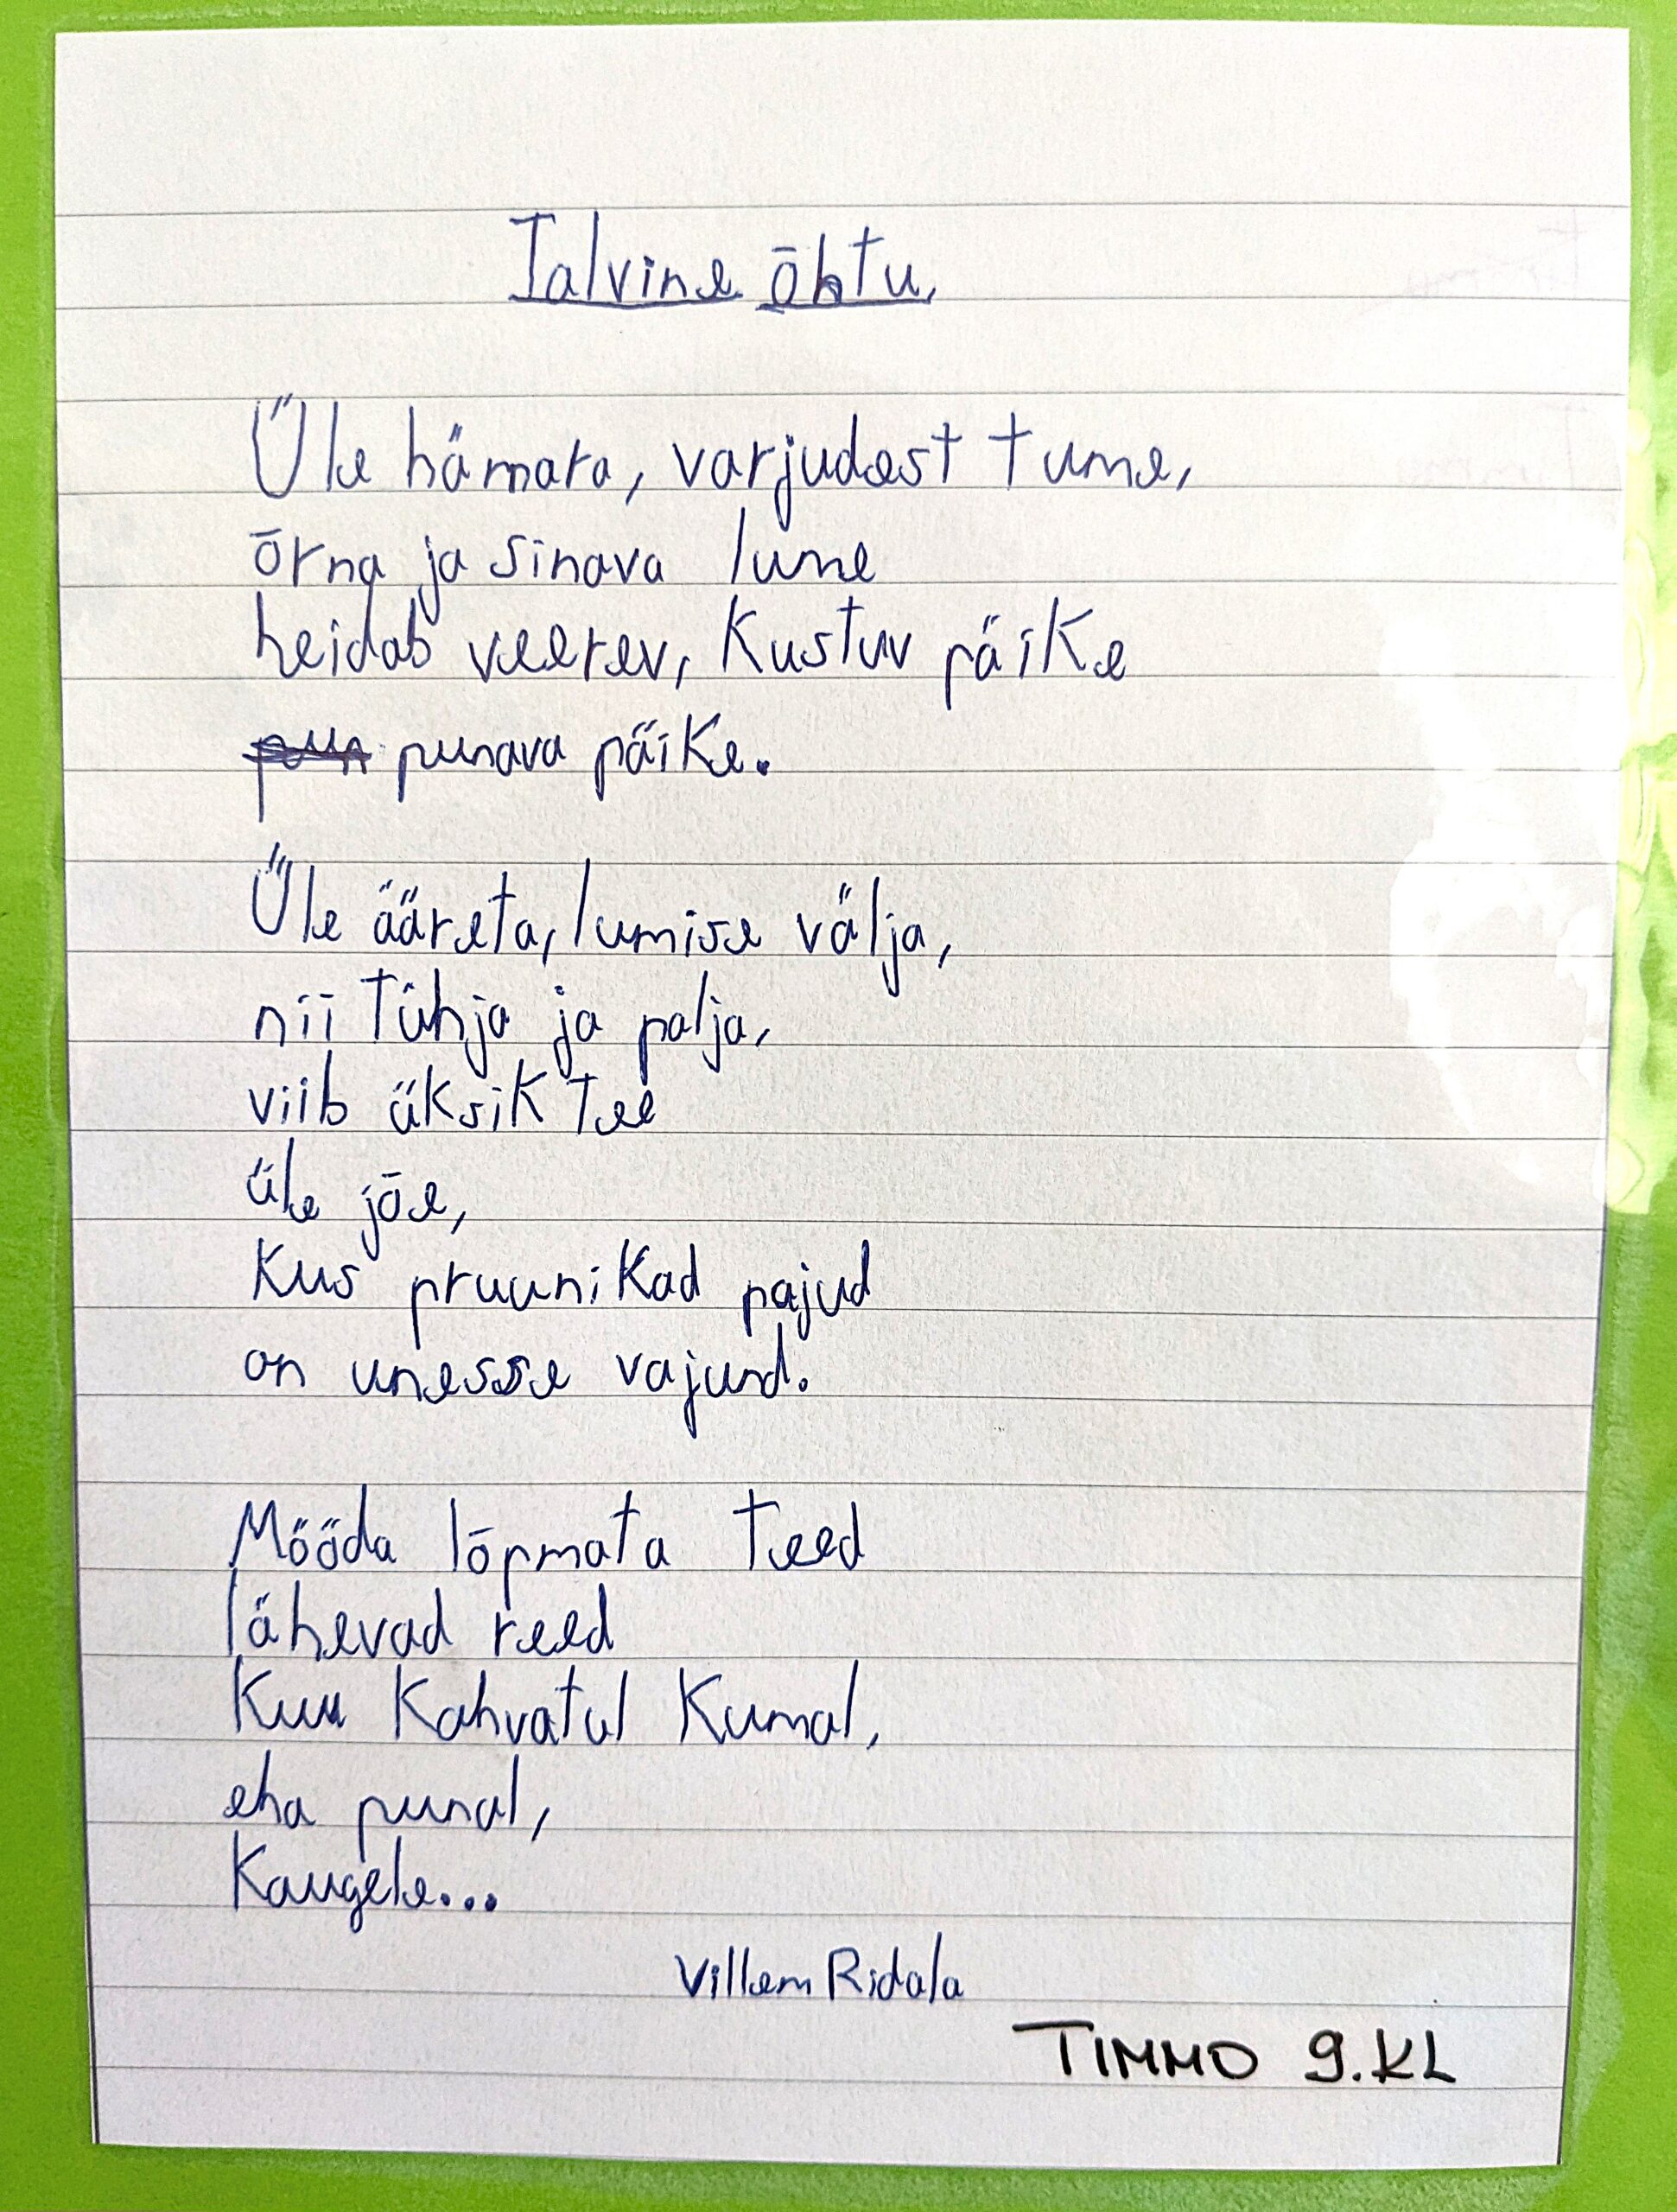 Talvine õhtu,
Üle hämara, varjudest tume,
õrna ja sinava lume
heidab veerev, kustuv päike
pun punava päike.
Üle ääreta, lumise välja,
nii tühja ja palja,
viib üksik tee
üle jõe,
kus pruunikad pajud
on unesse vajund.
Mööda lõpmata teed
lähevad reed
kuu kahvatul kumal,
eha punal,
kaugele...
Villem Ridala
TIMMO 9.KL